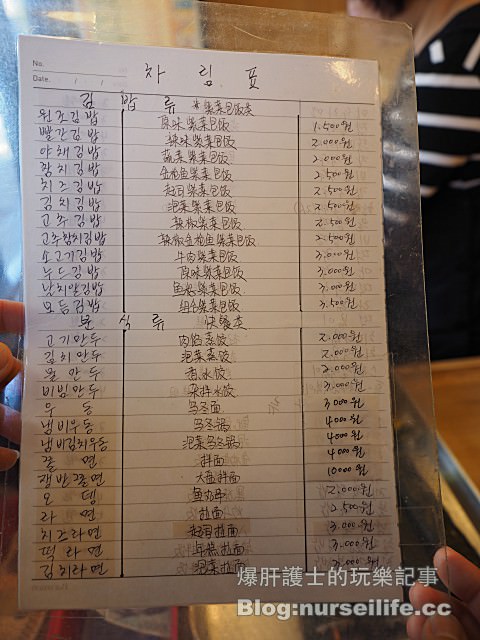 No.
Date. / /
차 림 표
김 밥 류 米 紫菜包饭类
원조김밥 原味紫菜包饭 1.500원
빨간김밥 辣味紫菜包饭 2.000원
야채김밥 蔬菜紫菜包饭 2.000원
참치김밥 金枪鱼紫菜包饭 2.500원
치즈김밥 起司紫菜包饭 2.500원
김치김밥 泡菜紫菜包饭 2.500원
고추김밥 辣椒紫菜包饭 2.500원
고추참치김밥 辣椒金枪鱼紫菜包饭 2.500원
소고기김밥 牛肉紫菜包饭 3.000원
누드김밥 原味紫菜包饭 3.000원
날치알김밥 紫菜包饭 3.000원
모듬김밥 组合紫菜包饭 3.500원
분 식 류 快餐类
고기만두 肉馅蒸饺 2.000원
김치만두 泡菜蒸饺 2.000원
물만두 水饺 2.000원
비빔만두 杂拌水饺 3.000원
우 동 乌冬面 3000원
냄비우동 乌冬锅 4000원
냄비김치우동 泡菜乌冬锅 4000원
쫄 면 拌面 4000원
쟁반쫄면 大盘拌面 10000원
오 뎅 鱼丸串 2.000원
라 면 拉面 2.500원
치즈라면 起司拉面 3.000원
떡라면 年糕拉面 3.000원
김치라면 泡菜拉面 3.000원
爆肝護士的玩樂記事
Blog:nurseilife.cc